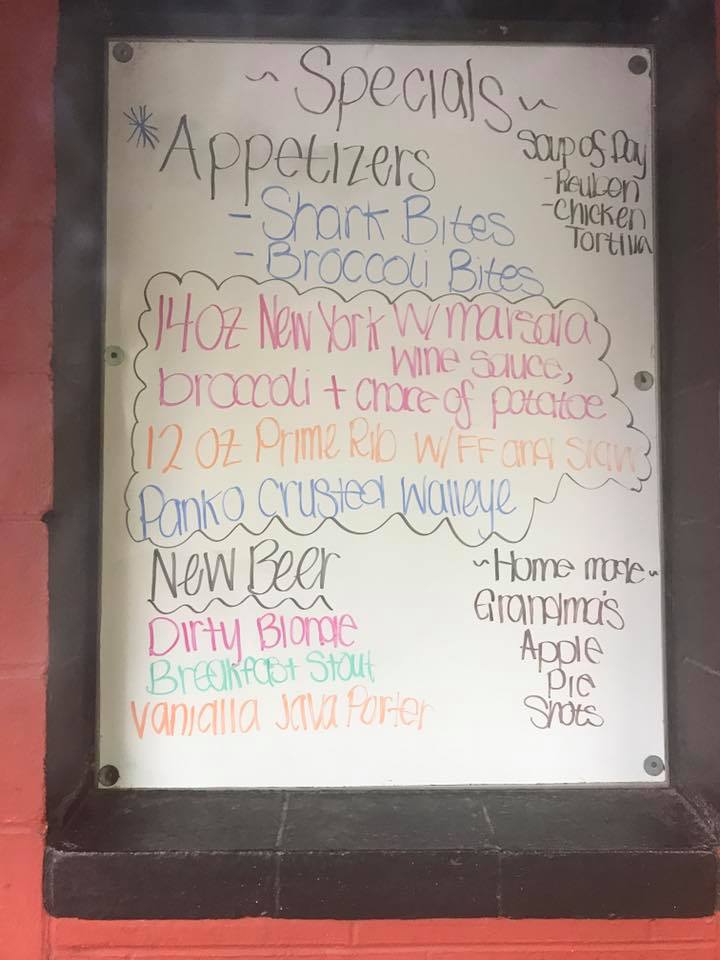 ~ Specials ~
* Appetizers
- Shark Bites
- Broccoli Bites
Soup of Day
- Reuben
- Chicken
Tortilla
14oz New York W/marsala
wine sauce,
broccoli + choice of potatoe
12 oz Prime Rib W/FF and slaw
Panko Crusted Walleye
New Beer
Dirty Blonde
Breakfast Stout
Vanialla Java Porter
~Home made~
Grandma's
Apple
Pie
Shots